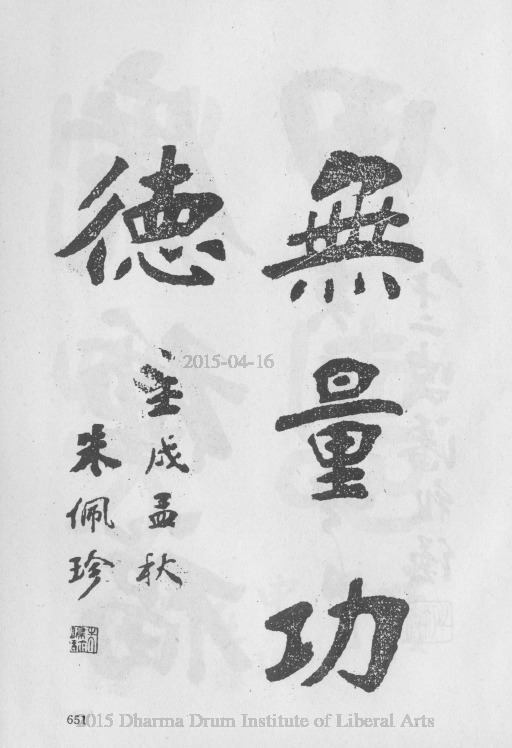 無量功
德
壬戌孟秋
朱佩珍
2015-04-16
651
2015 Dharma Drum Institute of Liberal Arts